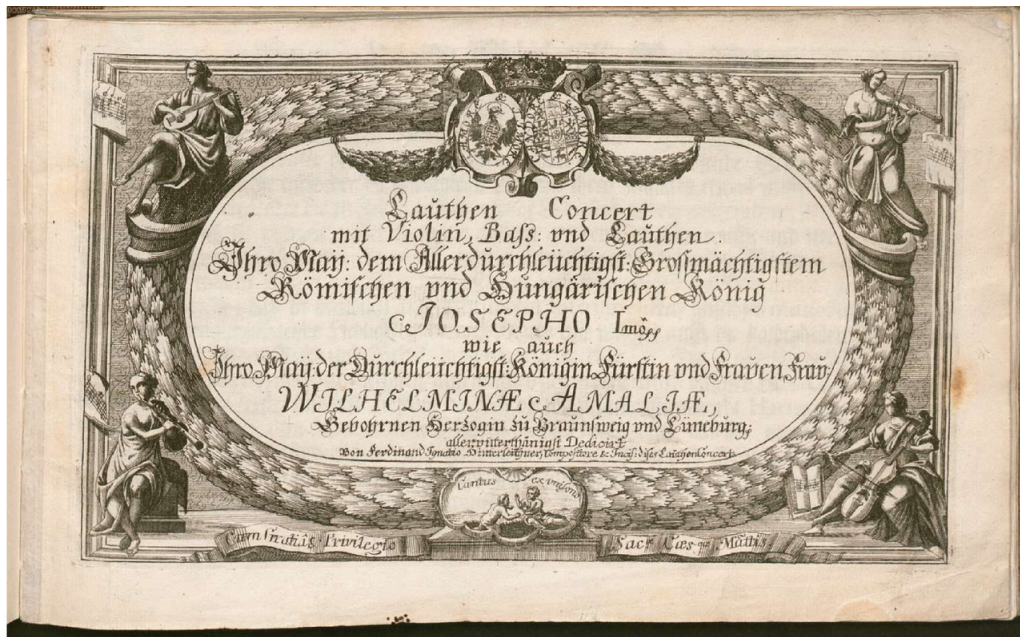 Lauthen Concert
mit Violin, Bass: vnd Lauthen.
Ihro Maÿ: dem Allerdurchleüchtigst: Grossmächtigstem
Römischen vnd Hungarischen König
JOSEPHO Imo
wie auch
Ihro Maÿ: der Durchleüchtigst: Königin Fürstin vnd Frauen Frau:
WILHELMINÆ AMALIÆ,
Gebohrnen Hertzogin zu Braunsweig vnd Lüneburg;
allervnterthänigst Dedicirt
Von Ferdinand Ignatio Hinterleithner, Compositore & diser Lauthen Concert.
Cantus ex vnisono
Cum Gratiis Privilegio
Sac. Cæs. Mattis